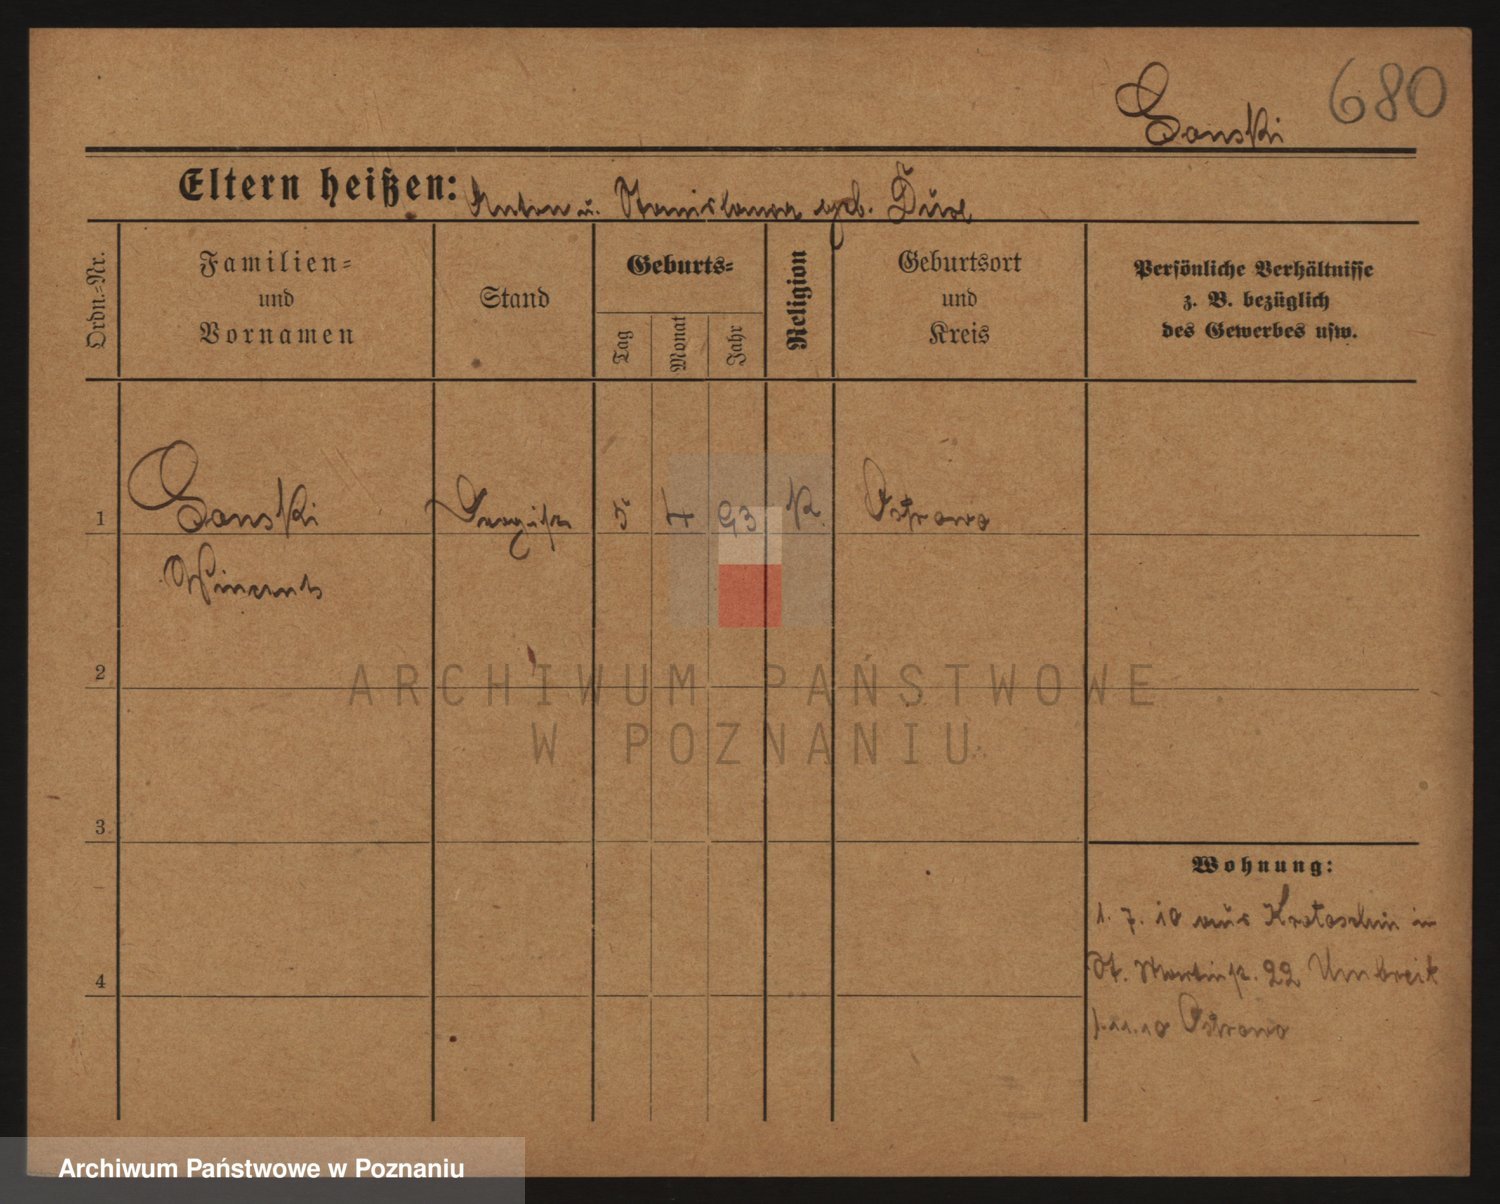 680
Sonski
Eltern heißen: Anton u. Stanislawa geb.
Ordn.-Nr.
Familien-
und
Vornamen
Stand
Geburts-
Tag
Monat
Jahr
Religion
Geburtsort
und
Kreis
Persönliche Verhältnisse
z. B. bezüglich
des Gewerbes usw.
1
Sonski
5
4
93
K.
Ostrowo
Vincent
2
ARCHIWUM PAŃSTWOWE
W POZNANIU
3
Wohnung:
1. 7. 10 aus Krotoschin in
St. Martinstr. 22 Umbreit
4
1.11.10 Ostrowo
Archiwum Państwowe w Poznaniu